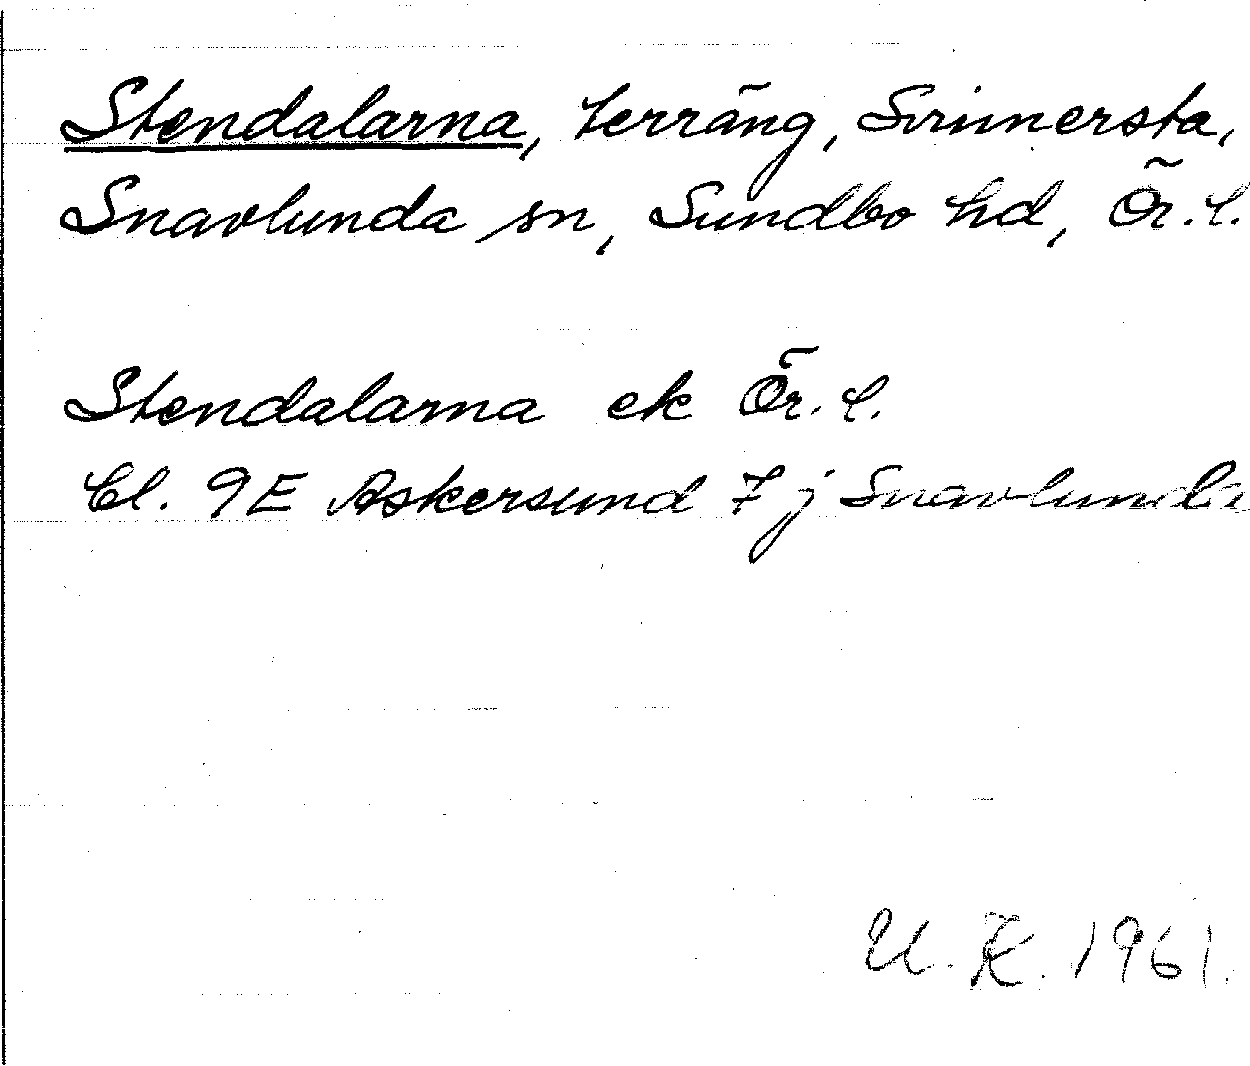 Stendalarna, terräng, Svinnersta,
Snavlunda sn, Sundbo hd, Ör. l.
Stendalarna ek Ör. l.
Bl. 9E Askersund 7 j Snavlunda
U. K. 1961.